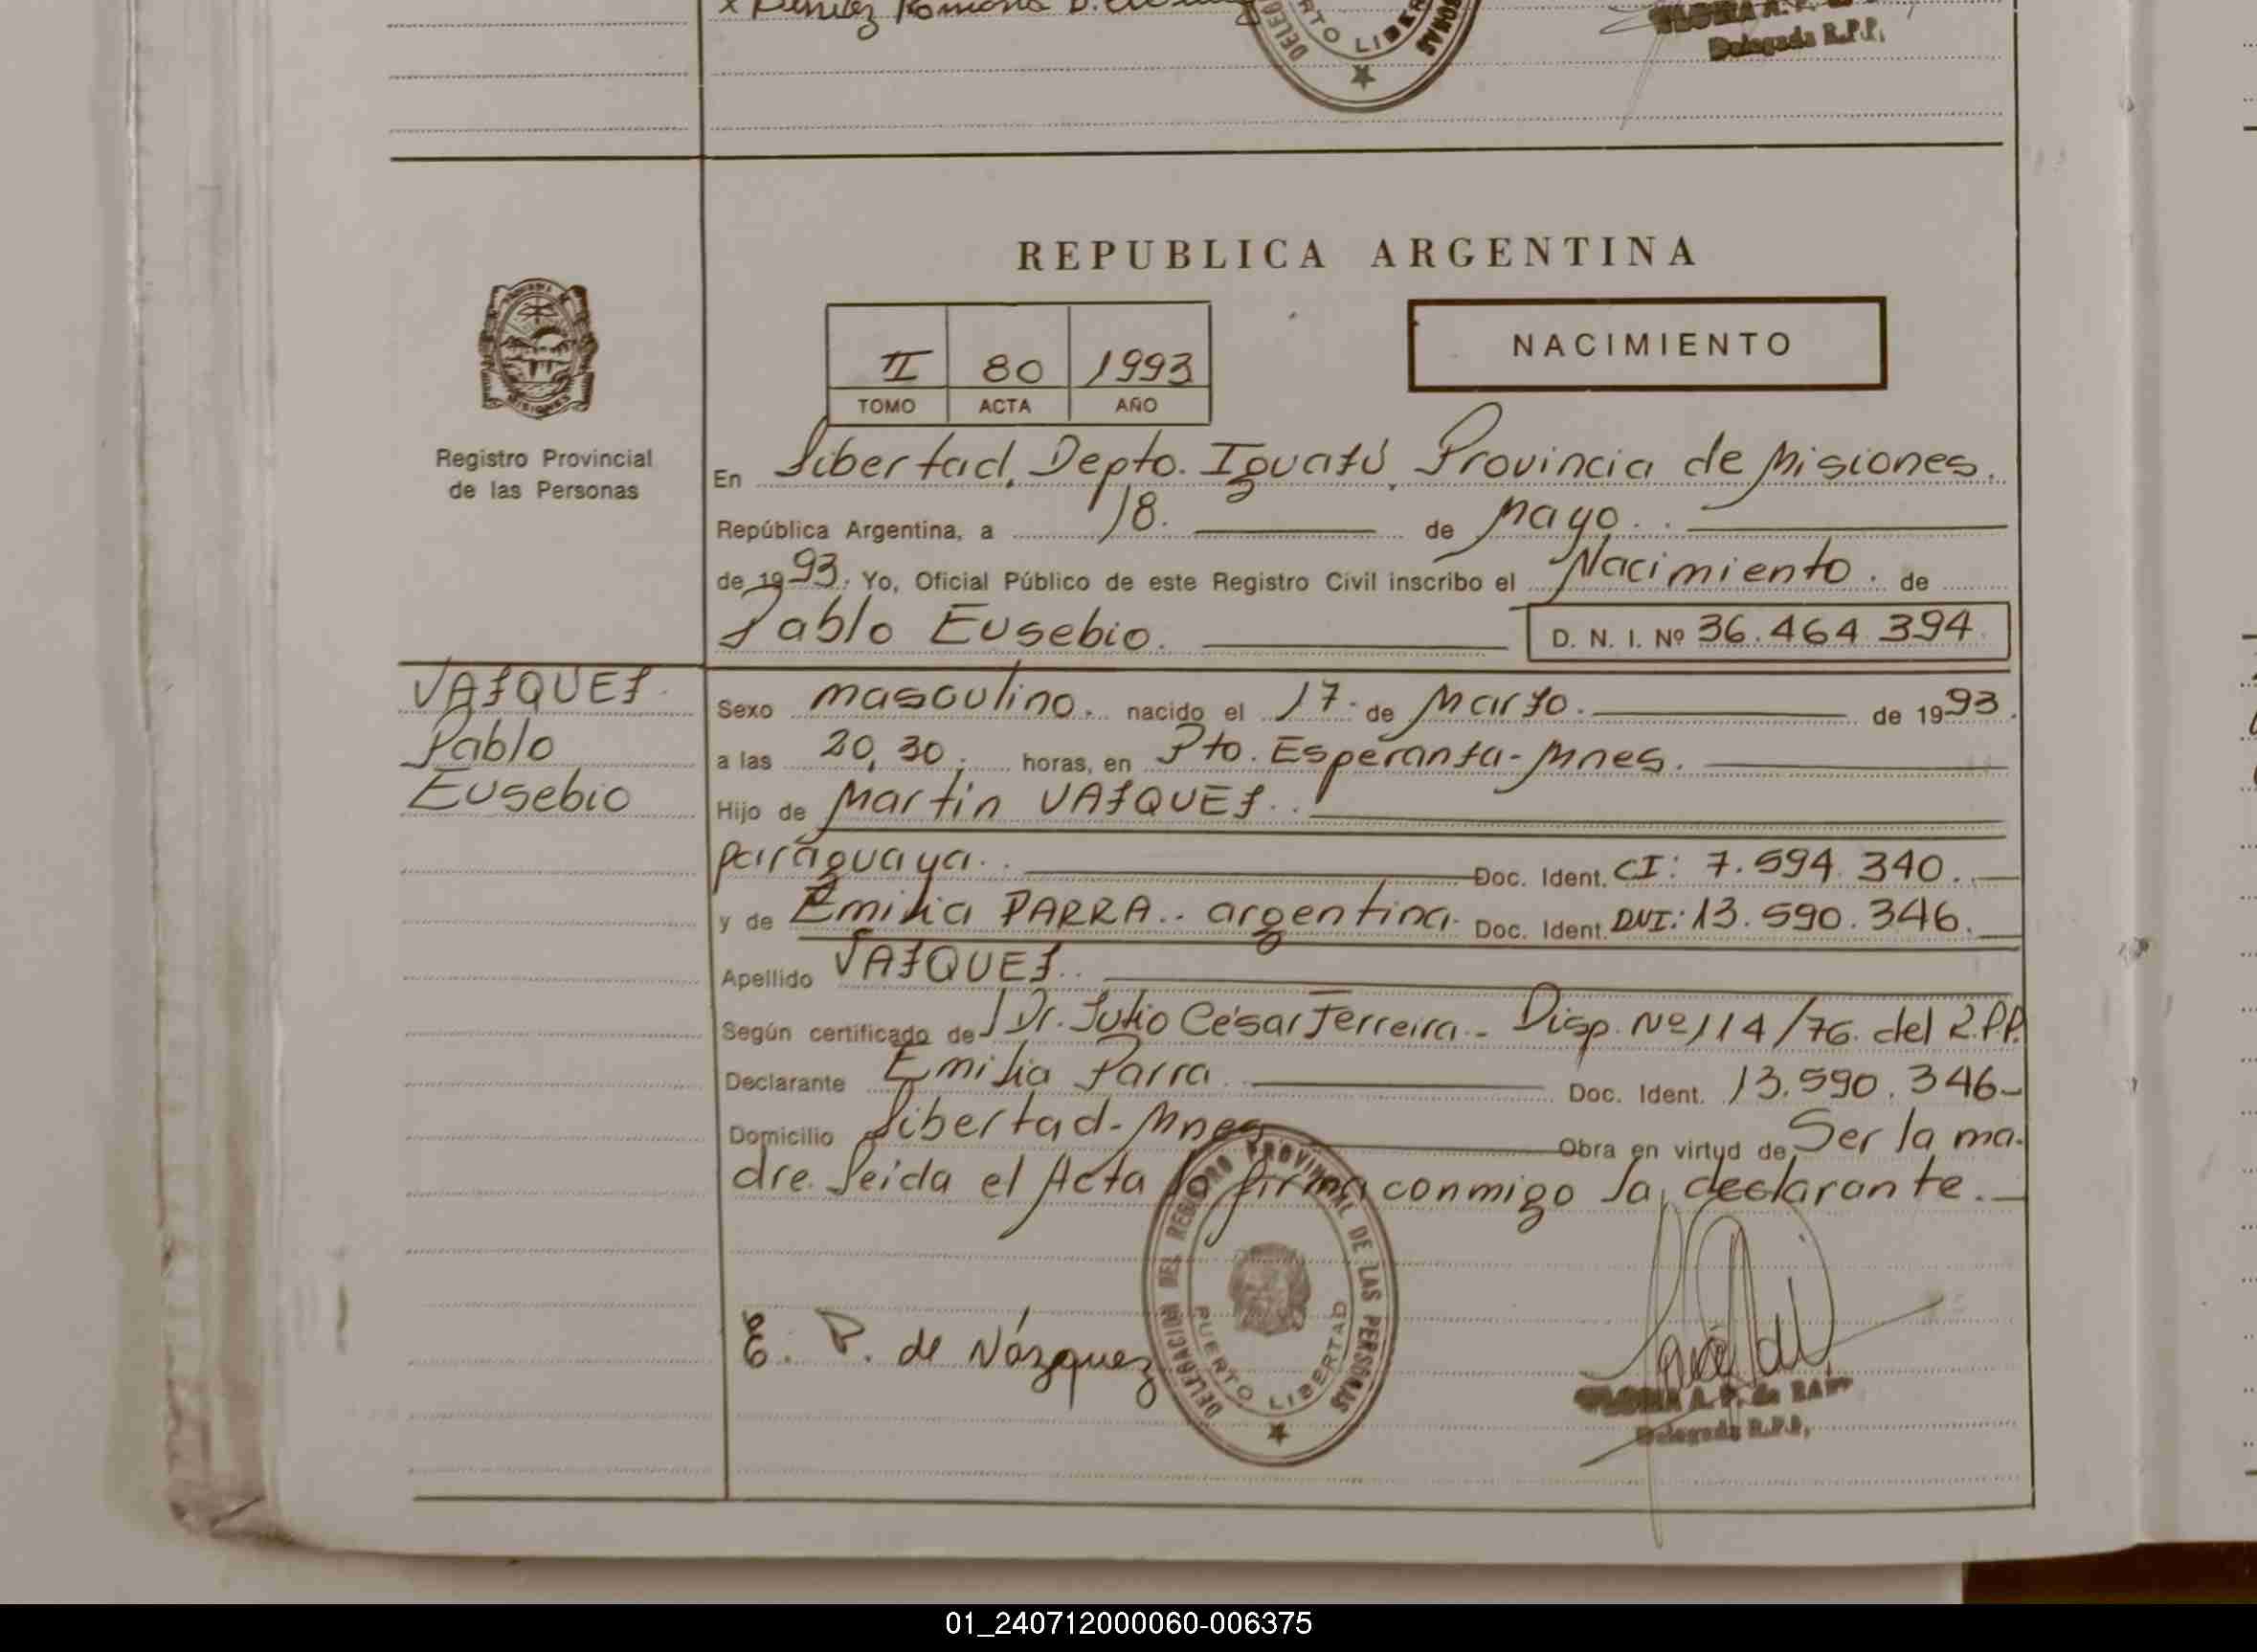 PUERTO LIBERTAD
Delegada R.P.P.
REPUBLICA ARGENTINA
NACIMIENTO
II 80 1993
TOMO ACTA AÑO
Registro Provincial
de las Personas
En Libertad, Depto. Iguazú, Provincia de Misiones.
República Argentina, a 18. de Mayo.
de 1993. Yo, Oficial Público de este Registro Civil inscribo el Nacimiento. de
Pablo Eusebio. D. N. I. Nº 36.464.394
VAZQUEZ
Pablo
Eusebio
Sexo masculino. nacido el 17. de Marzo. de 1993.
a las 20,30. horas, en Pto. Esperanza-Mnes.
Hijo de Martin VAZQUEZ.
paraguaya. Doc. Ident. CI: 7.594.340.
y de Emilia PARRA.. argentina. Doc. Ident. DNI: 13.590.346.
Apellido VAZQUEZ..
Según certificado de Dr. Julio César Ferreira.- Disp. Nº 114/76. del R.P.P.
Declarante Emilia Parra. Doc. Ident. 13.590.346-
Domicilio Libertad-Mnes Obra en virtud de Ser la ma-
dre. Leida el Acta la firma conmigo la declarante.
DELEGACION DEL REGISTRO PROVINCIAL DE LAS PERSONAS
PUERTO LIBERTAD
E. P. de Vázquez
Delegada R.P.P.
01_240712000060-006375